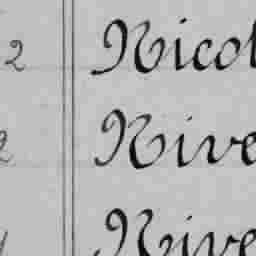 2 Nicol
2 Rive
Rive